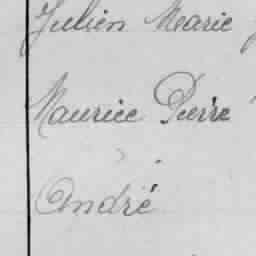 Julien Marie
Maurice Pierre
André